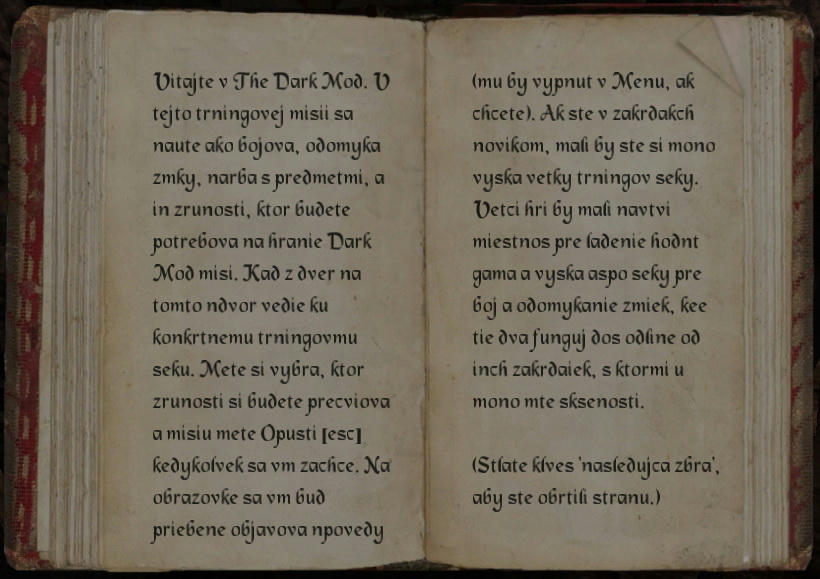 Vitajte v The Dark Mod. V
tejto trningovej misii sa
naute ako bojova, odomyka
zmky, narba s predmetmi, a
in zrunosti, ktor budete
potrebova na hranie Dark
Mod misi. Kad z dver na
tomto ndvor vedie ku
konkrtnemu trningovmu
seku. Mete si vybra, ktor
zrunosti si budete precviova
a misiu mete Opusti [esc]
kedykolvek sa vm zachce. Na
obrazovke sa vm bud
priebene objavova npovedy
(mu by vypnut v Menu, ak
chcete). Ak ste v zakrdakch
novikom, mali by ste si mono
vyska vetky trningov seky.
Vetci hri by mali navtvi
miestnos pre ladenie hodnt
gama a vyska aspo seky pre
boj a odomykanie zmiek, kee
tie dva funguj dos odline od
inch zakrdaiek, s ktormi u
mono mte sksenosti.
(Stlate klves 'nasledujca zbra',
aby ste obrtili stranu.)